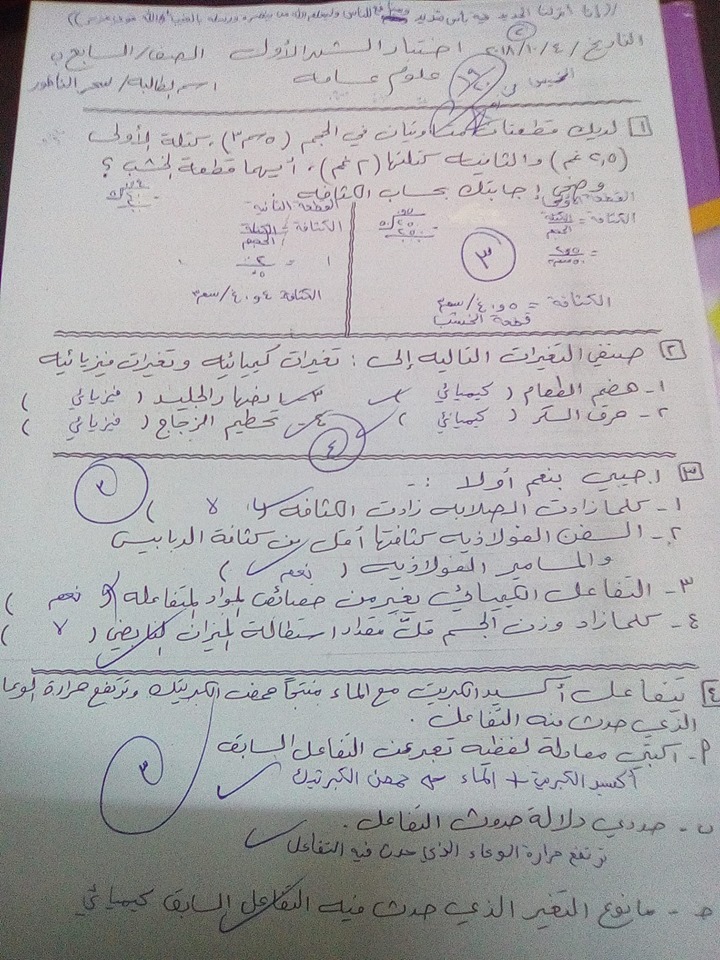 ((إنا أنزلنا الحديد فيه بأس شديد ومنافع للناس وليعلم الله من ينصره ورسله بالغيب إن الله قوي عزيز))
التاريخ / ٤ / ١٠ / ٢٠١٨ اختبار الشهر الأول الصف / السابع ب
الخميس علوم عامة اسم الطالبة / سحر الناطور
١ لديك قطعتان متساويتان في الحجم (٥ سم٣)، كتلة الأولى
(٢,٥ غم) والثانية كتلتها (٢ غم)، أيهما قطعة الخشب ؟
وضحي إجابتك بحساب الكثافة
القطعة الأولى
الكثافة = الكتلة
الحجم
الكثافة = ٠,٥ غ/سم٣
قطعة الخشب
٣
القطعة الثانية
الكثافة = الكتلة
الحجم
الكثافة ٠,٤ غ/سم٣
٢ صنفي التغيرات التالية إلى : تغيرات كيميائية وتغيرات فيزيائية
١- هضم الطعام ( كيميائي ) ٣- انصهار الجليد ( فيزيائي )
٢- حرق السكر ( كيميائي ) ٤- تحطيم الزجاج ( فيزيائي )
٤
٣ أجيبي بنعم أو لا :-
١- كلما زادت الصلابة زادت الكثافة ( لا )
٢- السفن الفولاذية كثافتها أقل من كثافة الدبابيس
والمسامير الفولاذية ( نعم )
٣- التفاعل الكيميائي يغير من خصائص المواد المتفاعلة ( نعم )
٤- كلما زاد وزن الجسم قل مقدار استطالة الميزان النابضي ( لا )
٤ يتفاعل أكسيد الكبريت مع الماء منتجاً حمض الكبريتيك وترتفع حرارة الوعاء
الذي حدث فيه التفاعل .
٣
أ- اكتبي معادلة لفظية تعبر عن التفاعل السابق
أكسيد الكبريت + الماء → حمض الكبرتيك
ب- حددي دلالة حدوث التفاعل .
ترتفع حرارة الوعاء الذي حدث فيه التفاعل
ج- ما نوع التغير الذي حدث فيه التفاعل السابق كيميائي